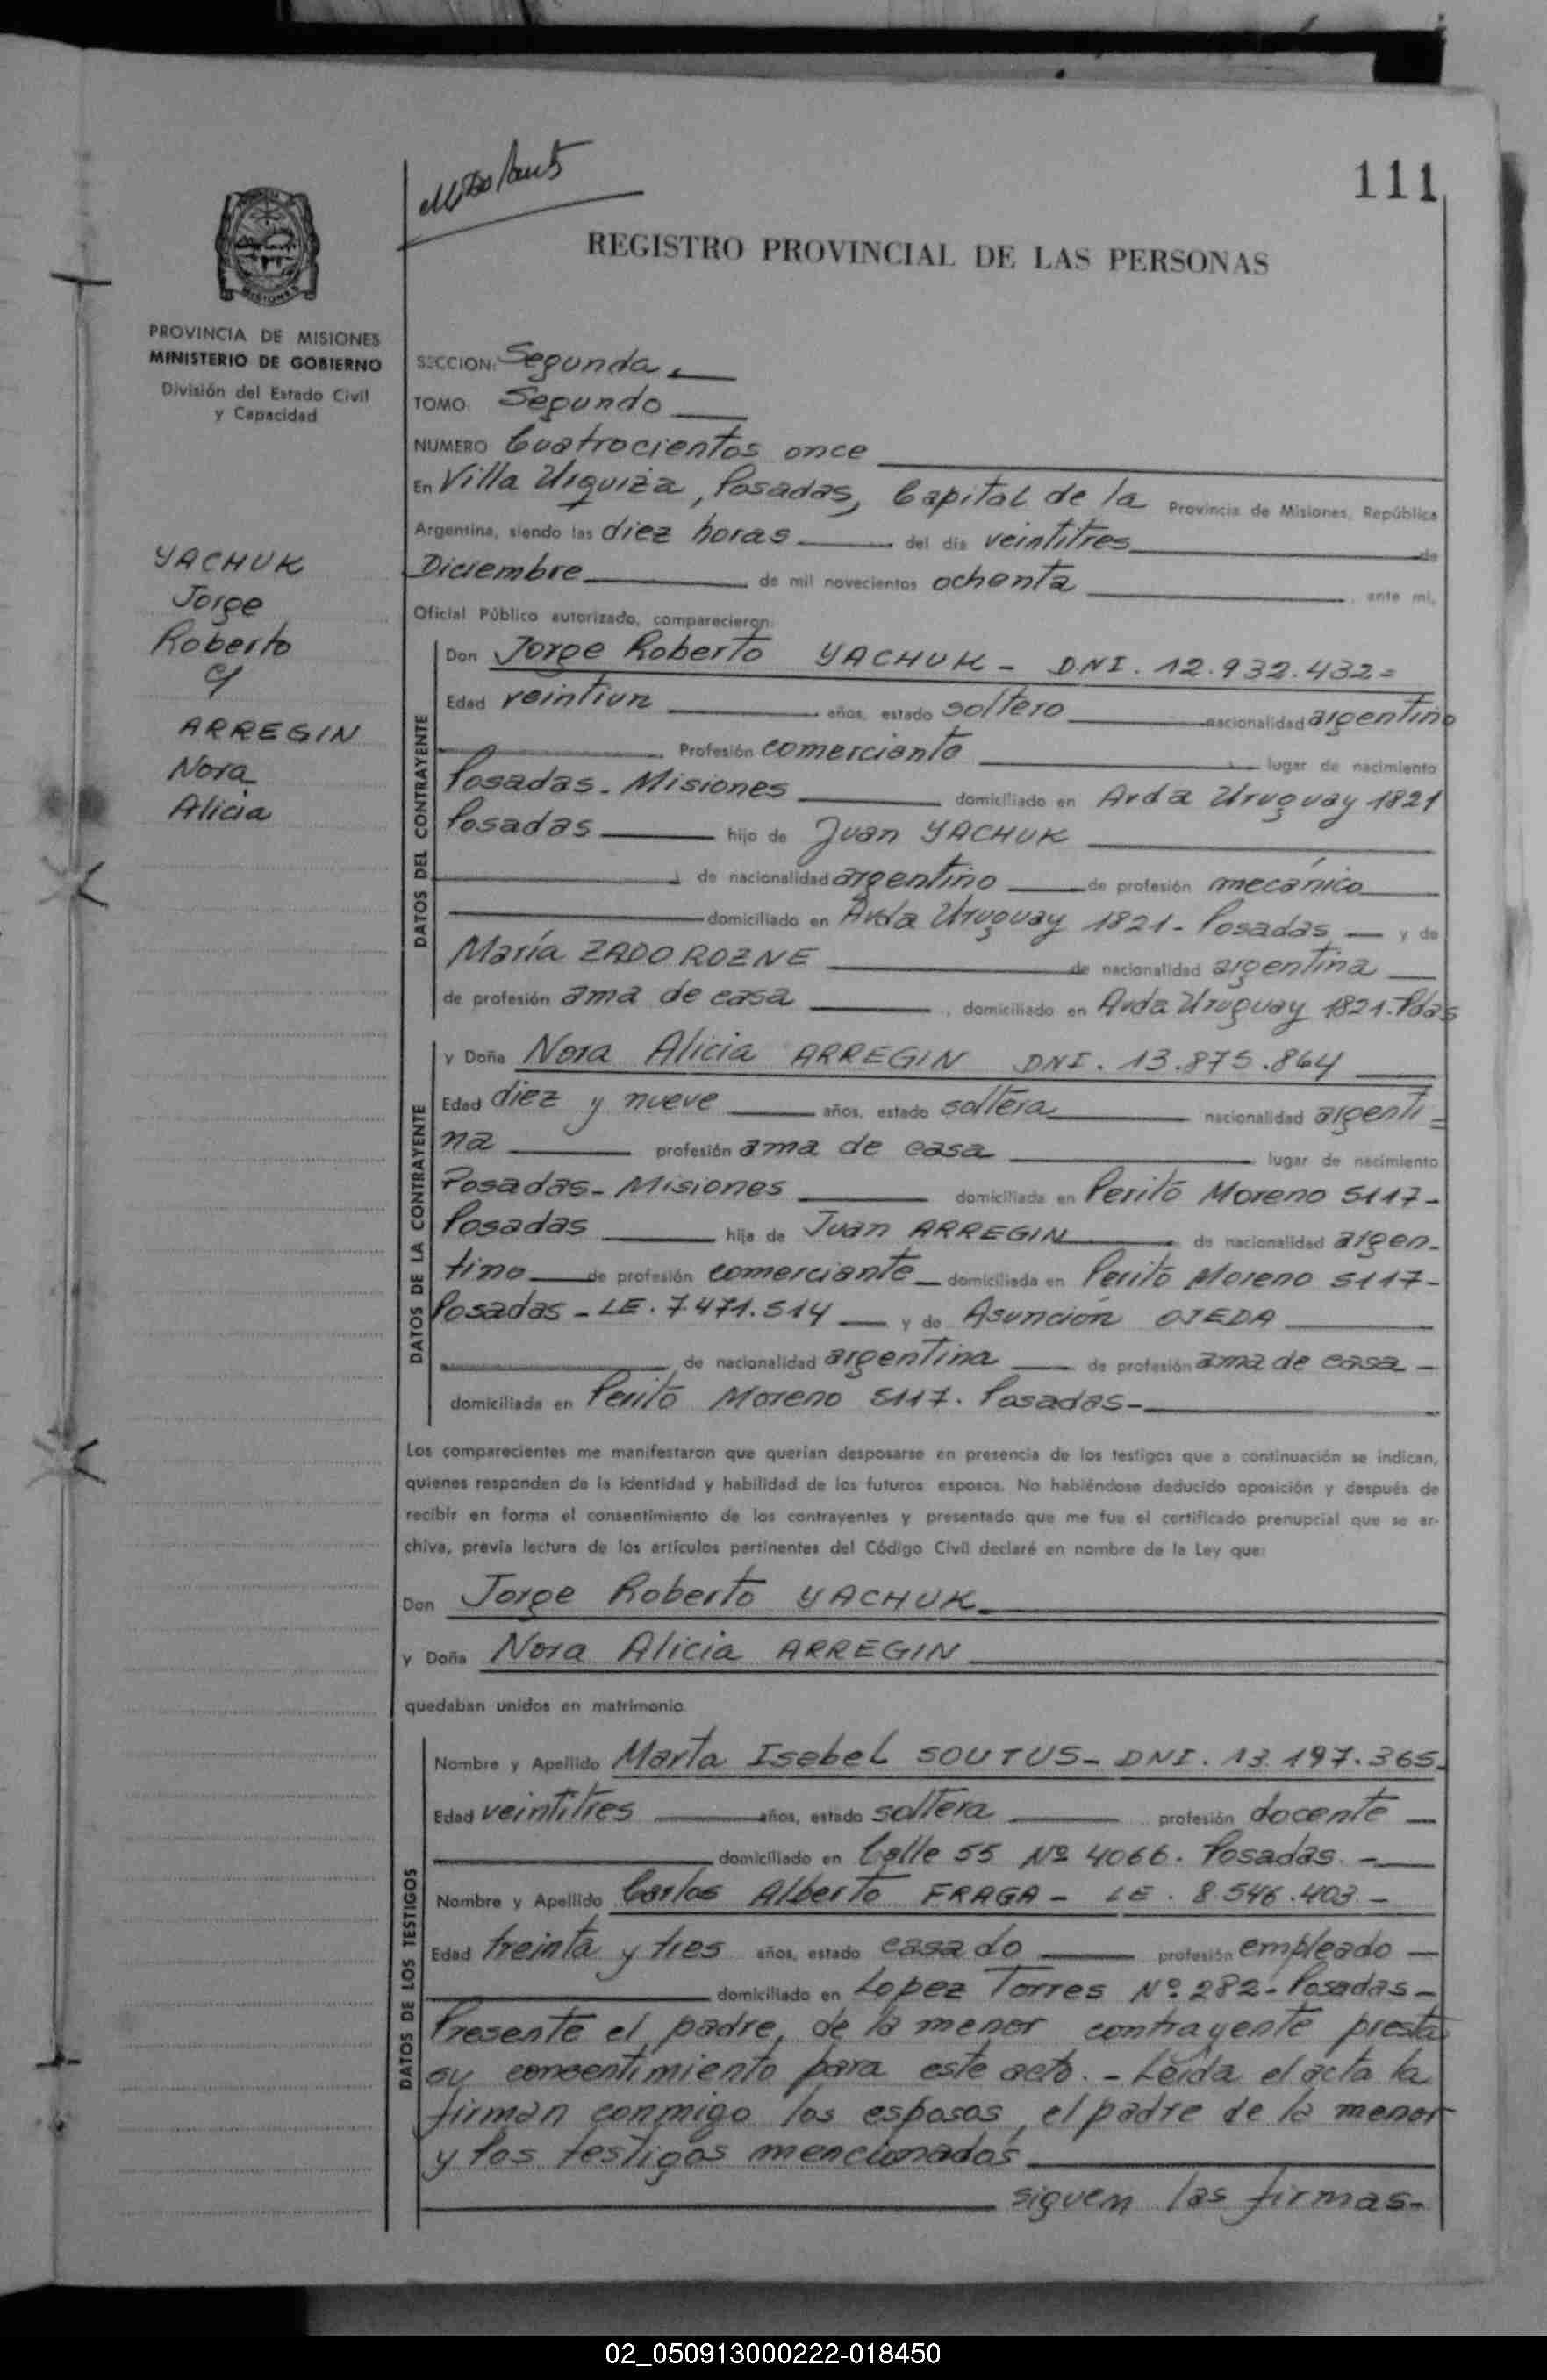 111
REGISTRO PROVINCIAL DE LAS PERSONAS
MISIONES
PROVINCIA DE MISIONES
MINISTERIO DE GOBIERNO
División del Estado Civil
y Capacidad
YACHUK
Jorge
Roberto
c/
ARREGIN
Nora
Alicia
SECCION: Segunda
TOMO: Segundo
NUMERO Cuatrocientos once
En Villa Urquiza, Posadas, Capital de la Provincia de Misiones, República
Argentina, siendo las diez horas del día veintitres de
Diciembre de mil novecientos ochenta ante mí,
Oficial Público autorizado, comparecieron:
DATOS DEL CONTRAYENTE
Don Jorge Roberto YACHUK - DNI. 12.932.432=
Edad veintiun años, estado soltero nacionalidad argentino
Profesión comerciante lugar de nacimiento
Posadas - Misiones domiciliado en Avda Uruguay 1821
Posadas hijo de Juan YACHUK
de nacionalidad argentino de profesión mecánico
domiciliado en Avda Uruguay 1821 - Posadas y de
María ZADOROZNE de nacionalidad argentina
de profesión ama de casa, domiciliado en Avda Uruguay 1821-Pdas
DATOS DE LA CONTRAYENTE
y Doña Nora Alicia ARREGIN DNI. 13.875.864
Edad diez y nueve años, estado soltera nacionalidad argenti=
na profesión ama de casa lugar de nacimiento
Posadas - Misiones domiciliada en Perito Moreno 5117-
Posadas hija de Juan ARREGIN de nacionalidad argen-
tino de profesión comerciante domiciliada en Perito Moreno 5117-
Posadas - LE. 7471.514 y de Asunción OJEDA
de nacionalidad argentina de profesión ama de casa -
domiciliada en Perito Moreno 5117. Posadas-
Los comparecientes me manifestaron que querían desposarse en presencia de los testigos que a continuación se indican,
quienes responden de la identidad y habilidad de los futuros esposos. No habiéndose deducido oposición y después de
recibir en forma el consentimiento de los contrayentes y presentado que me fue el certificado prenupcial que se ar-
chiva, previa lectura de los artículos pertinentes del Código Civil declaré en nombre de la Ley que:
Don Jorge Roberto YACHUK
y Doña Nora Alicia ARREGIN
quedaban unidos en matrimonio.
DATOS DE LOS TESTIGOS
Nombre y Apellido Marta Isabel SOUTUS - DNI. 13.197.365.
Edad veintitres años, estado soltera profesión docente
domiciliado en Calle 55 Nº 4066. Posadas. -
Nombre y Apellido Carlos Alberto FRAGA - LE. 8.546.403. -
Edad treinta y tres años, estado casado profesión empleado
domiciliado en Lopez Torres Nº 282 - Posadas -
Presente el padre, de la menor contrayente presta
su consentimiento para este acto. - Leída el acta la
firman conmigo los esposos, el padre de la menor
y los testigos mencionados
siguen las firmas-
02_050913000222-018450